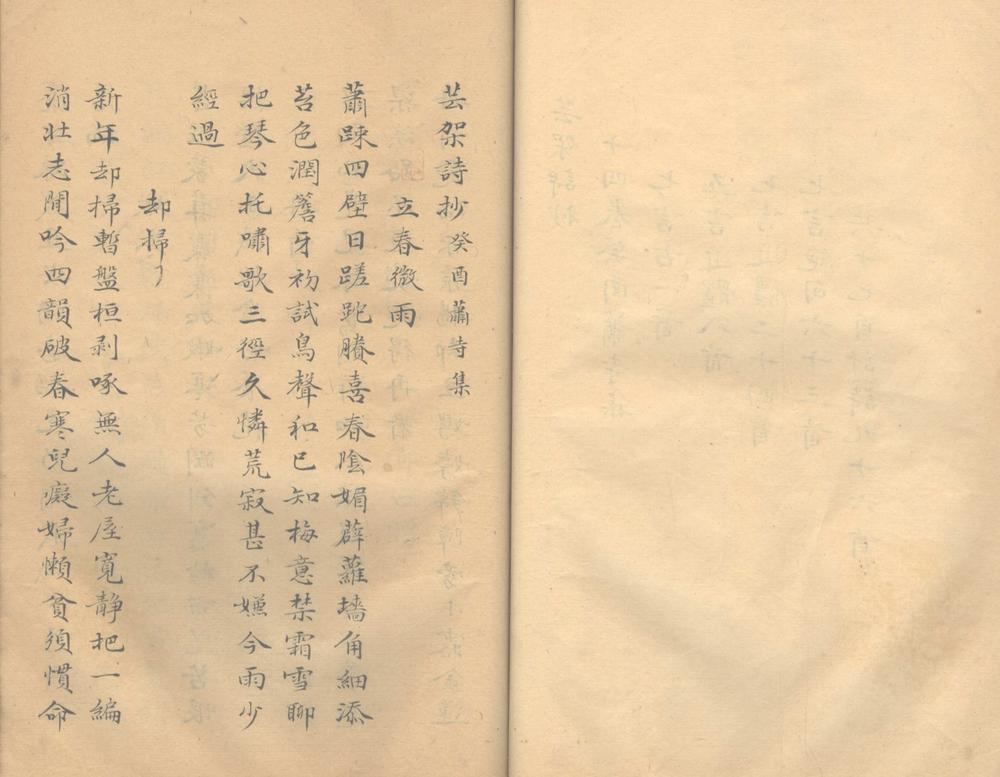 芸架詩抄 癸酉蕭詩集
立春微雨
蕭踈四壁日蹉跎賸喜春陰媚薜蘿墻角細添
苔色潤簷牙初試鳥聲和已知梅意禁霜雪聊
把琴心托嘯歌三徑久憐荒寂甚不嫌今雨少
經過
却掃
新年却掃暫盤桓剥啄無人老屋寬静把一編
消壮志閒吟四韻破春寒兒癡婦懶貧須慣命